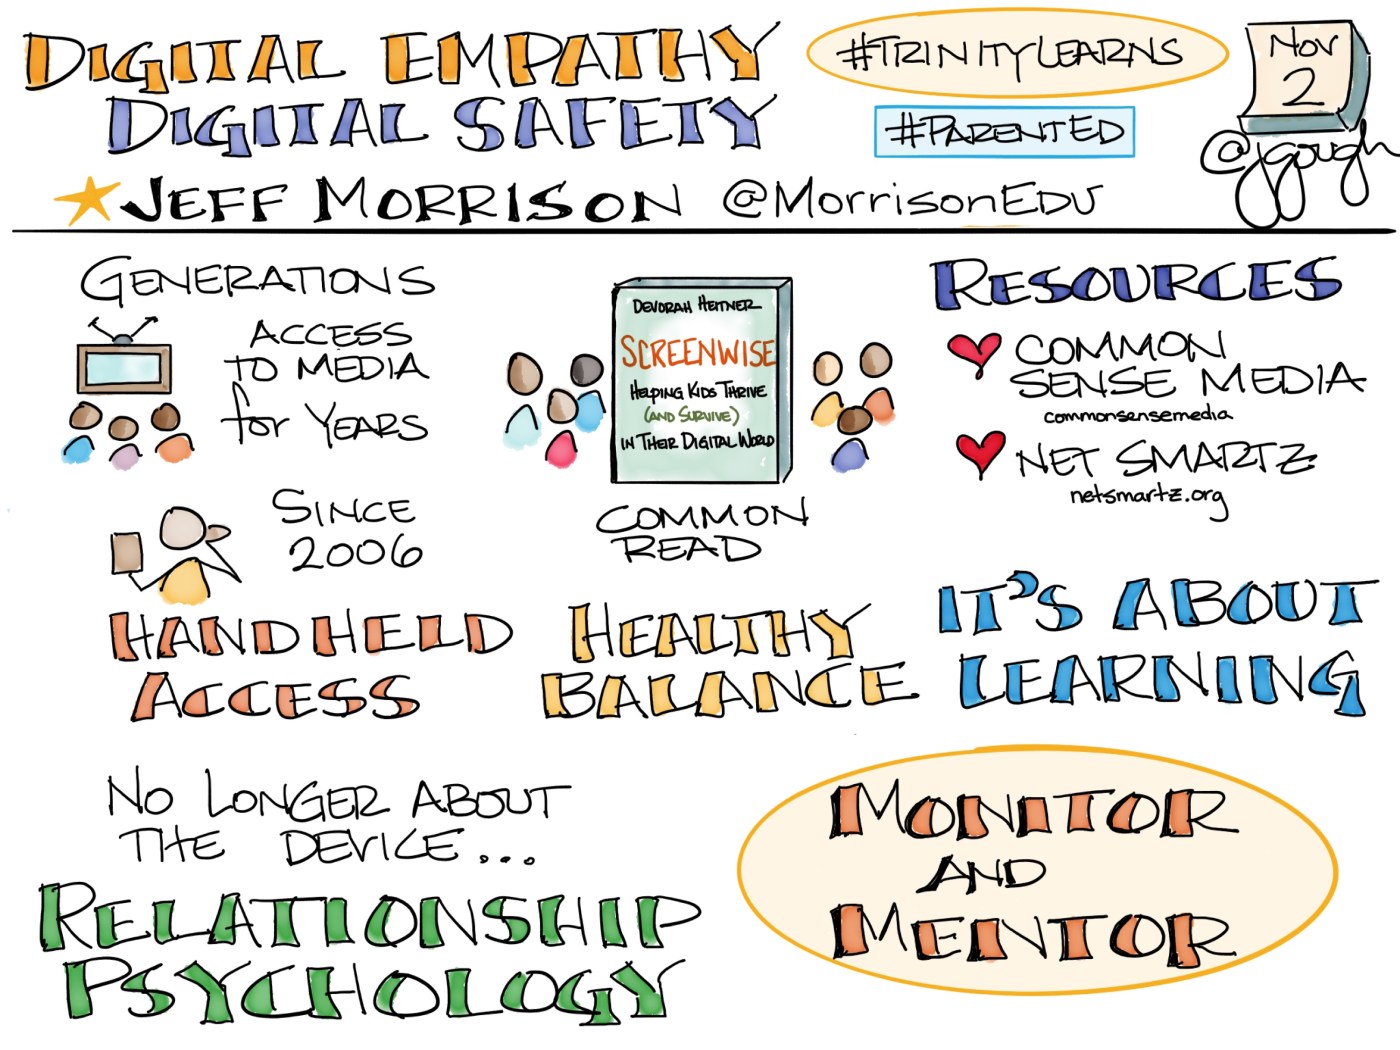 DIGITAL EMPATHY
DIGITAL SAFETY
JEFF MORRISON @MorrisonEDU
#TRINITYLEARNS
#PARENTED
Nov
2
@jgough
GENERATIONS
ACCESS
TO MEDIA
for YEARS
SINCE
2006
HANDHELD
ACCESS
DEVORAH HEITNER
SCREENWISE
HELPING KIDS THRIVE
(AND SURVIVE)
IN THEIR DIGITAL WORLD
COMMON
READ
HEALTHY
BALANCE
RESOURCES
COMMON
SENSE MEDIA
commonsensemedia
NET SMARTZ
netsmartz.org
IT'S ABOUT
LEARNING
NO LONGER ABOUT
THE DEVICE...
RELATIONSHIP
PSYCHOLOGY
MONITOR
AND
MENTOR